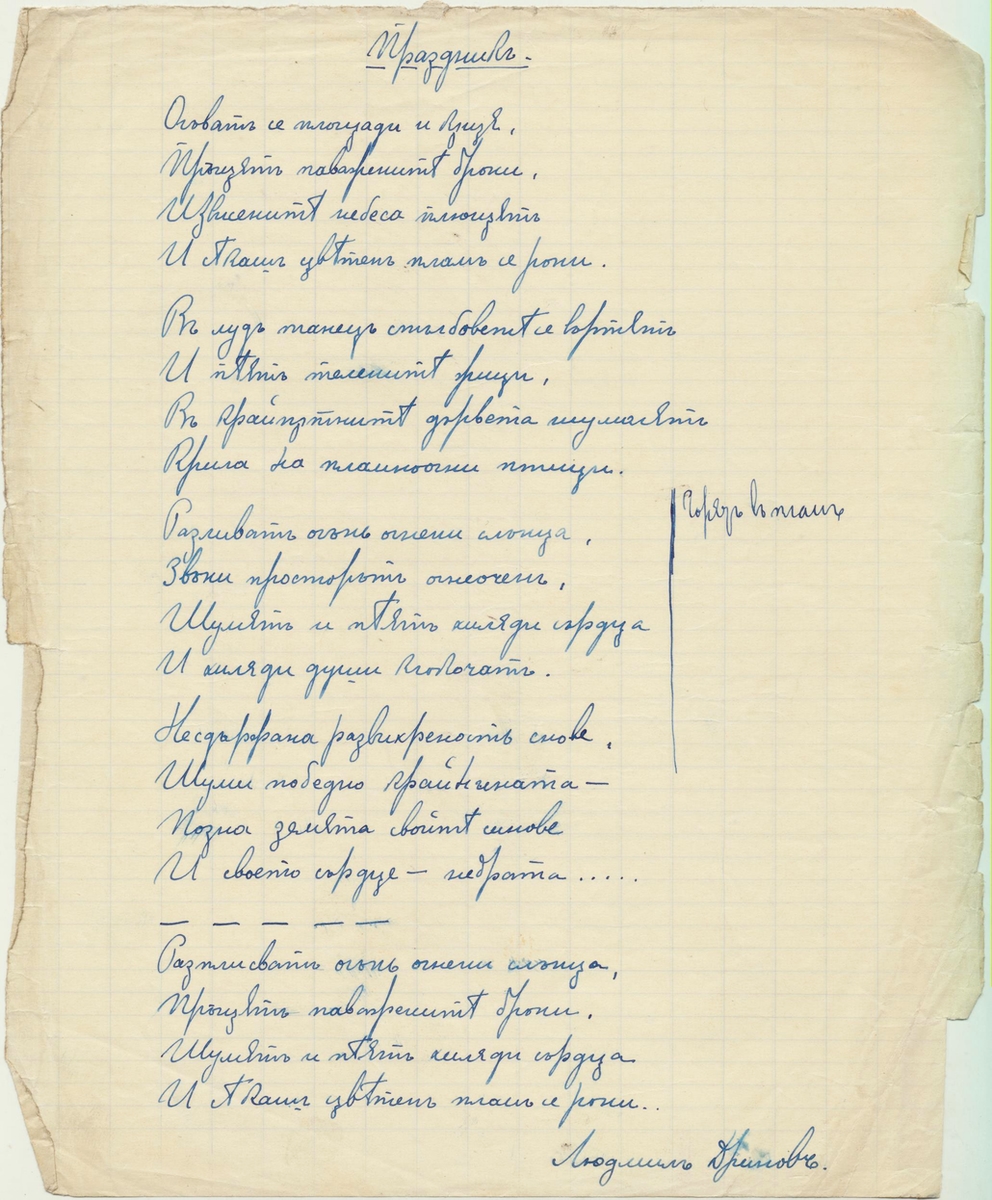 Праздникъ.
Огъватъ се площади и кѫщя,
Прѫщятъ навѫженитѣ брони,
Извиенитѣ небеса плющятъ
И сѣкашъ цвѣтенъ пламъ се рони.
Въ лудъ танецъ стълбоветѣ се въртятъ
И пѣятъ теленитѣ жици,
Въ крайпѫтнитѣ дървета шумолятъ
Крила на пламноогни птици.
Разливатъ огънь огнени слънца,
Звъни просторътъ огнеоченъ,
Шумятъ и пѣятъ хиляди сърдца
И хиляди души клокочатъ.
Горязъ въ пламъ
Несдържана развихреность снове,
Шуми победно крайнината —
Позна земята своитѣ синове
И своето сърдце — недрата.....
— — — — —
Разплисватъ огънь огнени слънца,
Прѫщятъ навѫженитѣ брони.
Шумятъ и пѣятъ хиляди сърдца
И сѣкашъ цвѣтенъ пламъ се рони..
Людмилъ Дриновъ.